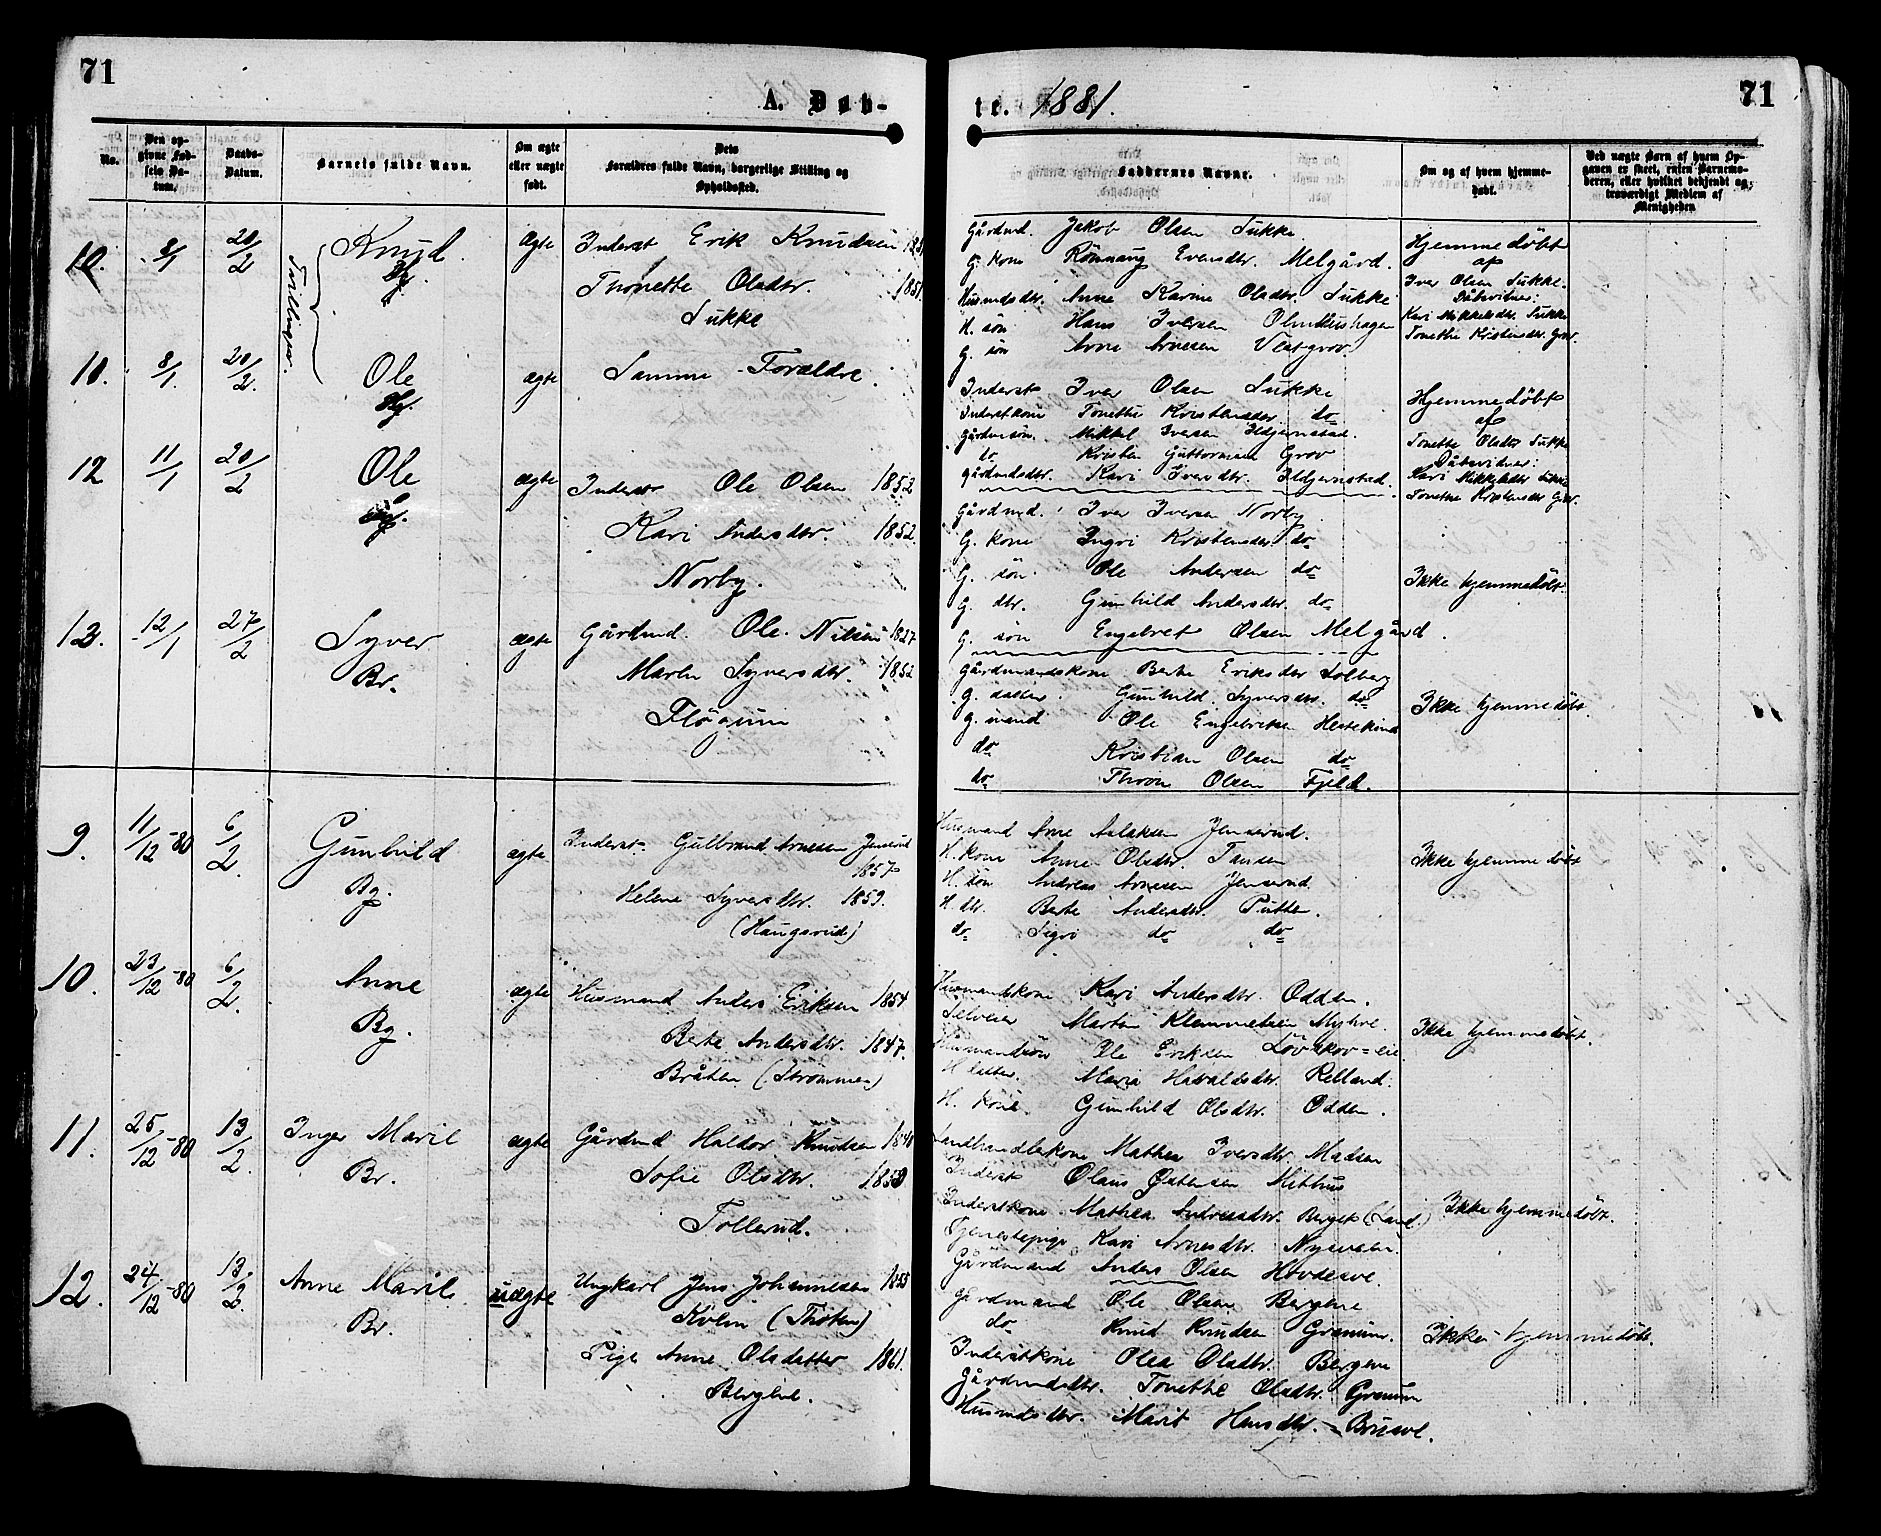 71
A. Døb-
No.
Den op-
givne Fød-
sels Da-
tum.
Daabs-
Datum.
Barnets fulde Navn.
Om ægte
eller uægte
født.
Dets
Forældres fulde Navn, borgerlige Stilling og
Opholdssted.
10.
8/1
20/2
Knud
Tvillinger.
ægte
Inderst Erik Knudsen
Thonette Olsdtr. 1851
Sukke
11.
8/1
20/2
Ole
ægte
Samme Forældre.
12
11/1
20/2
Ole
ægte
Inderst Ole Olsen 1852
Kari Andersdtr. 1852.
Norby.
13.
12/1
27/2
Syver
Br.
ægte
Gårdmd. Ole Nilsen 1827
Marte Syversdtr. 1852
Fløgum
9.
11/12 -80
6/2
Gunhild
Bg.
ægte
Inderst Gulbrand Arnesen Jenserud
1857
Helene Syversdtr. 1859.
(Haugsrud)
10.
23/12 -80
6/2
Anne
Bg.
ægte
Husmand Anders Eriksen 1854
Berte Andersdtr. 1847.
Bråten (Strømmen)
11.
25/12 -80
13/2
Inger Marit
Br.
ægte
Gårdmd Haldor Knudsen 1840
Sofie Olsdtr. 1853
Tollerud.
12.
24/12 -80
13/2
Anne Marit
Br.
uægte
Ungkarl Jens Johannesen
Kolin (Thoten)
Pige Anne Olsdatter 1861.
Bergene.
71
te. 1881.
Faddernes Navne.
Om og af hvem hjemme-
døbt.
Ved uægte Børn af hvem Op-
gaven er skeet, enten Barnemo-
deren, eller hvilket bekjendt og
troværdigt Medlem af
Menigheden
Gårdmd. Jakob Olsen Sukke.
G. kone Rønnaug Iversdtr. Melgård.
Husmdsdtr. Anne Karine Olsdtr. Sukke
H. søn Hans Iversen
G. søn Arne Arnesen Vestgrov
Hjemmedøbt
af
Iver Olsen Sukke.
Dåbsvidner:
Kari Mikkelsdtr. Sukke
Tonette Kristensdtr. Grov.
Inderst Iver Olsen Sukke
Inderstkone Tonette Kristensdtr do
Gårdmsøn. Mikkel Iversen Hdjernstad.
do Kristen Guttormsen Grov
Gårdmdsdtr. Kari Iversdtr. Hdjernstad.
Hjemmedøbt
af
Tonette Olsdtr Sukke
Dåbsvidner:
Kari Mikkelsdtr Sukke
Tonette Kristensdtr Grov.
Gårdmd. Iver Iversen Norby
G. kone Ingri Kristensdtr. do
G. søn Ole Andersen do
G. dtr. Gunhild Andersdtr. do
G. søn Engebret Olsen Melgård.
Ikke hjemmedøbt.
Gårdmandskone Berte Eriksdtr Solberg
G. datter. Gunhild Syversdtr. do
G. mand Ole Engebretsen Hestekind
do Kristian Olsen do
do Thron Olsen Fjeld.
Ikke hjemmedøbt.
Husmand Arne Aslaksen Jenserud.
H. kone Anne Olsdtr. Tansen
H. søn Andreas Arnesen Jenserud
H. dtr. Berte Andersdtr. Putten.
do Sigri do do
Ikke hjemmedøbt
Husmandskone Kari Andersdtr. Odden.
Selveier Martin Klemmetsen Myhre.
Husmandsøn Ole Eriksen Løvskov=eie.
H datter. Maria Haraldsdtr. Relland.
H. kone. Gunhild Olsdtr. Odden.
Ikke hjemmedøbt.
Landhandlerkone Mathea Iversdtr. Madsen
Inderst Olaus Østensen Mithus
Inderstkone Mathea Andreasdtr. Berget (Land.)
Tjenestepige Kari Arnesdtr. Nysveen.
Gårdmand Anders Olsen Hovdesve.
Ikke hjemmedøbt.
Gårdmand Ole Olsen Bergene
do Knud Knudsen Granum.
Inderstkone Olea Olsdtr. Bergene
Gårdmdsdtr. Tonette Olsdtr. Granum
Husmdsdtr. Marit Hansdtr.
Ikke hjemmedøbt.